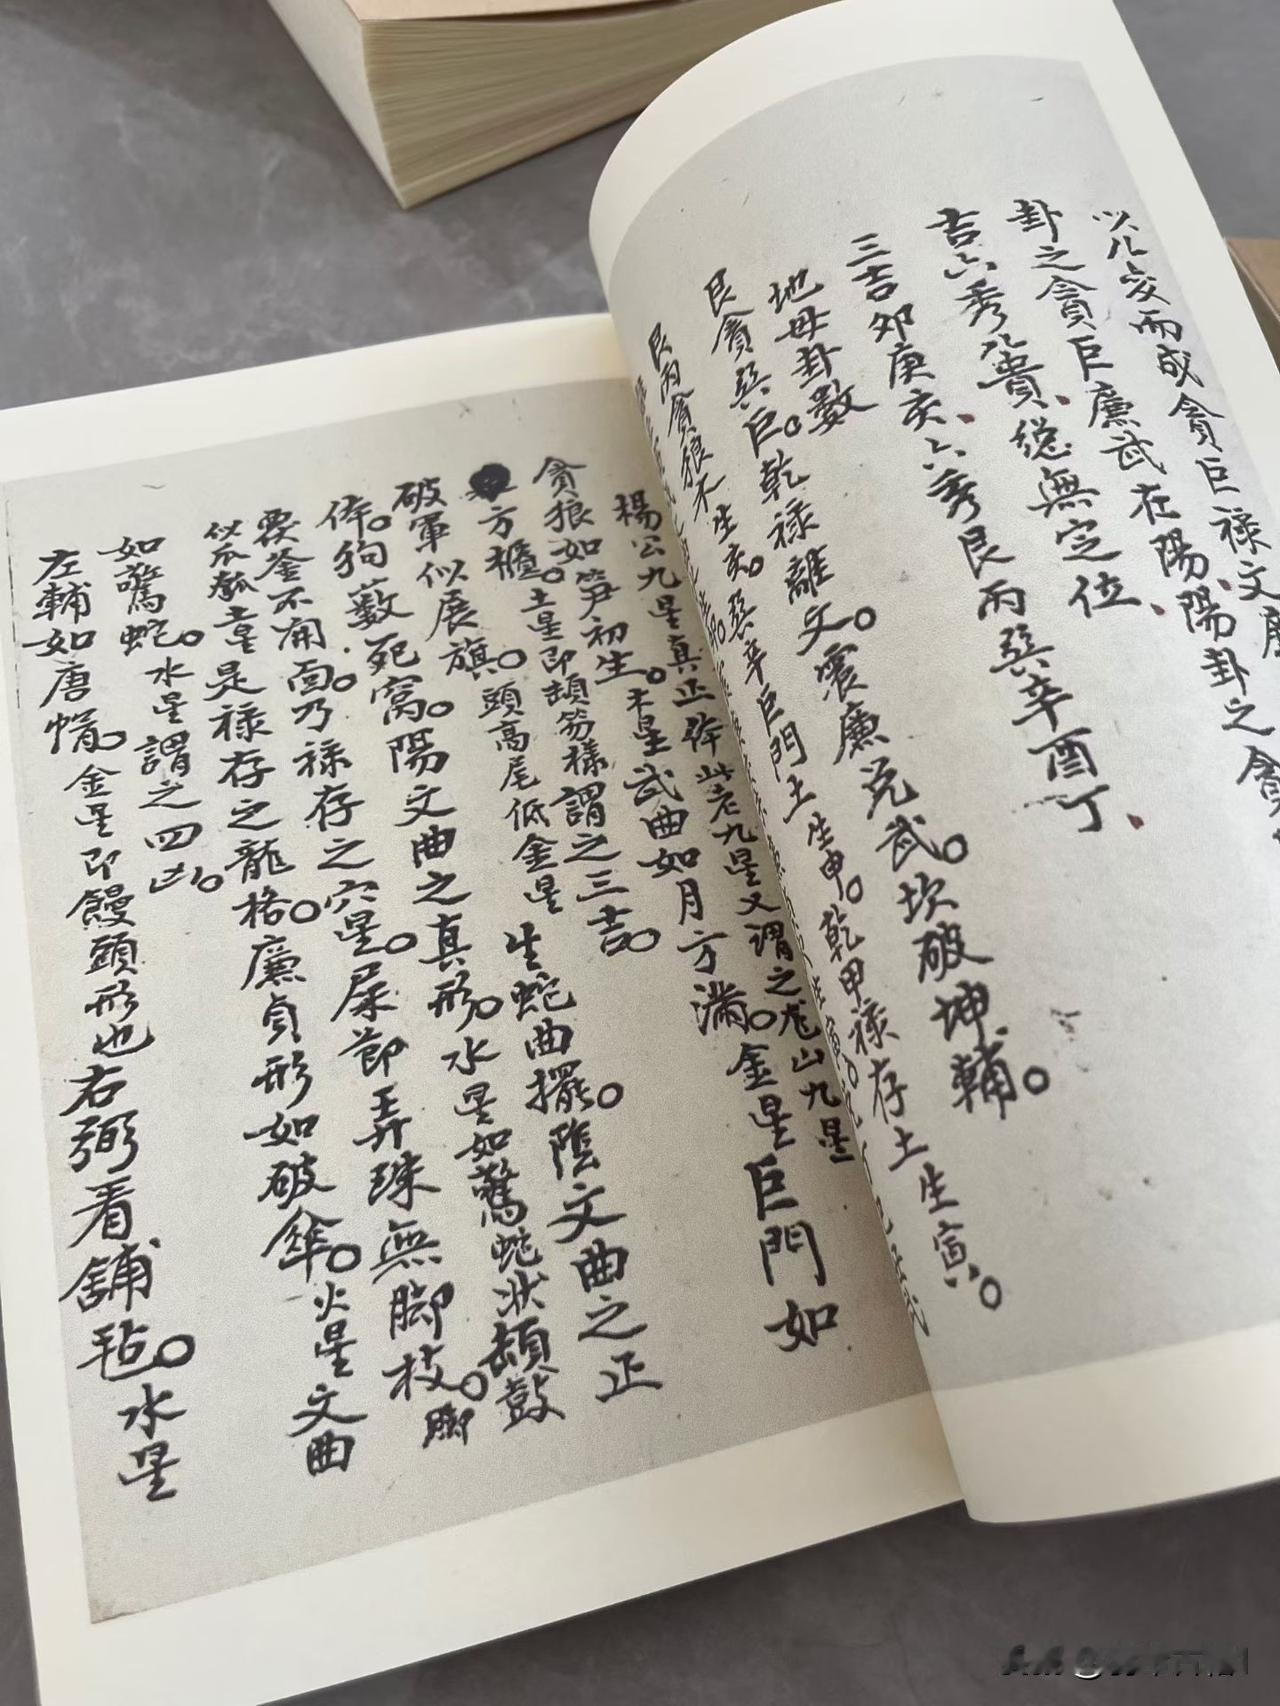 以八变而成贪巨禄文廉
卦之贪巨廉武在陽、陽卦之貪
吉六秀八貴、總無定位、
三吉卯庚亥、六秀艮丙巽辛酉丁、
地母卦數
艮貪巽巨。乾禄離文。震廉兑武。坎破坤輔。
艮丙貪狼木生亥。巽辛巨門土生申。乾甲禄存土生寅。
楊公九星真正体此老九星又謂之龙山九星
貪狼如笋初生。木星武曲如月方滿。金星巨門如
方櫃。土星即頓笏樣謂之三吉。
破軍似展旗。頭高尾低金星 生蛇曲擺。陰文曲之正
体。狗薮死窩。陽文曲之真形。水星如驚蛇状頓鼓
覆釜不開面。乃禄存之穴星。屎節弄珠無脚枝。脚
似瓜瓠土星是禄存之龍格。廉貞形如破傘。火星文曲
如驚蛇。水星謂之四凶。
左輔如唐帽。金星即饅頭形也右弼看舖毡。水星